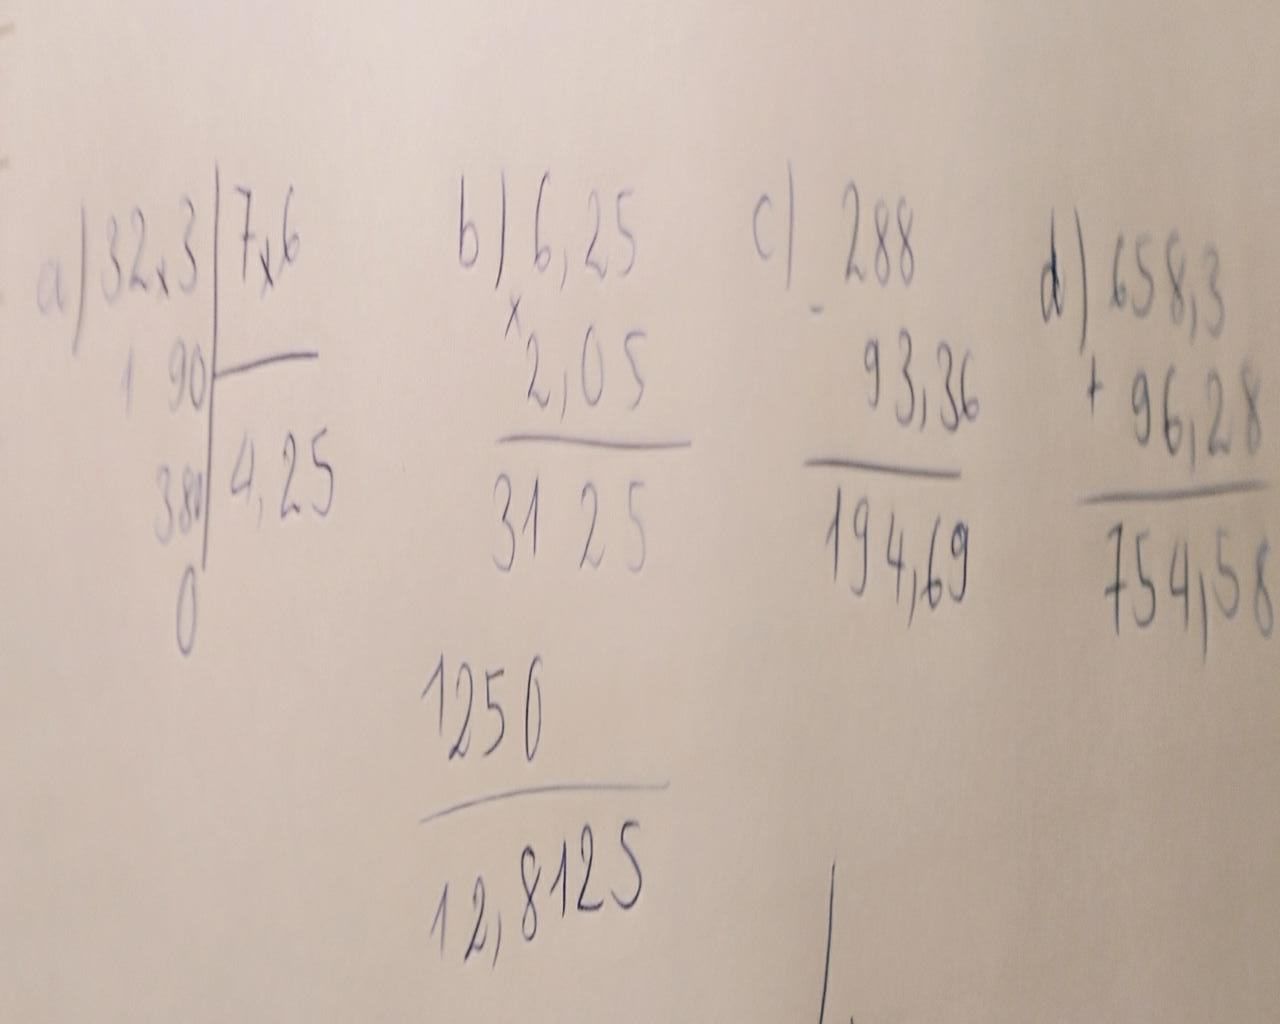 a) 32,3 | 7,6
1 90
380 | 4,25
0
b) 6,25
x
2,05
31 25
1250
12,8125
c) 288
-
93,36
194,69
d) 658,3
+ 96,28
754,58